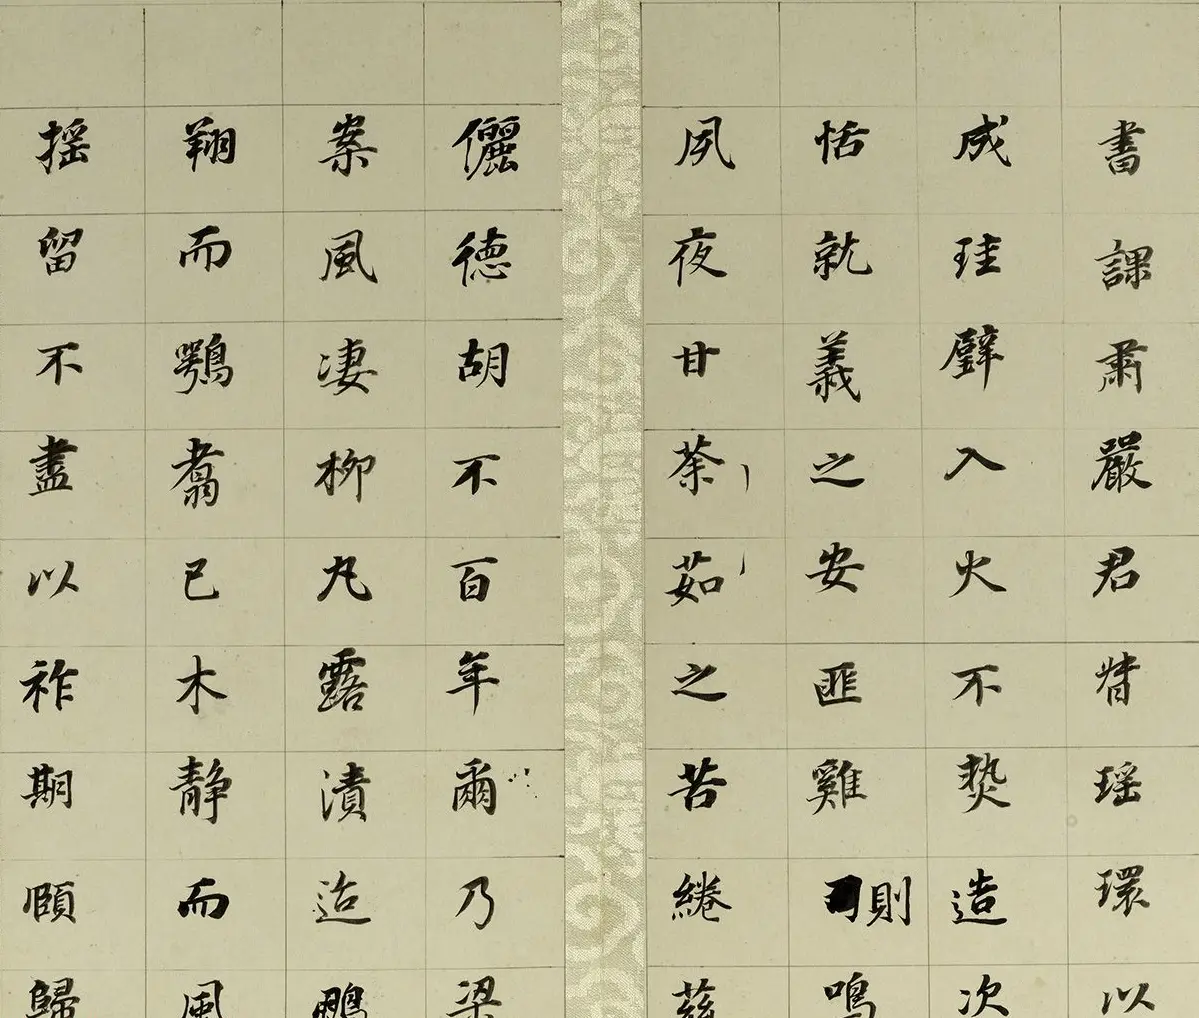 書課肅嚴君背瑶環以
成珪璧入火不爇造次
恬就義之安匪雞則鳴
夙夜甘荼茹之苦綣茲
儷德胡不百年爾乃梁
案風凄柳丸露漬迨鵬
翔而鶚翥已木静而風
揺留不盡以祚期頤歸